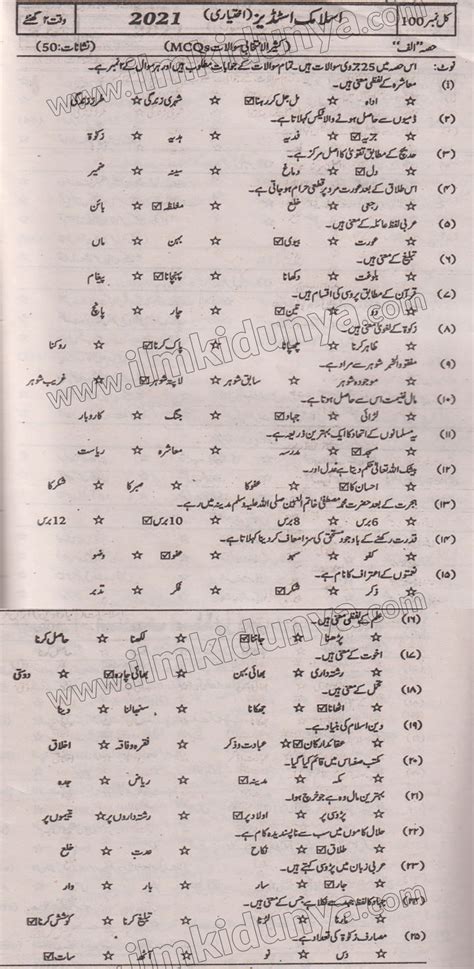 کل نمبر 100 اسلامک اسٹڈیز (اختیاری) 2021 وقت ۲ گھنٹے
حصہ "الف" (کثیر الانتخابی سوالات MCQs) (نشانات: 50)
نوٹ: اس حصہ میں 25 جزوی سوالات ہیں۔ تمام سوالات کے جوابات مطلوب ہیں اور ہر سوال کے ۲ نمبر ہے۔
(۱) معاشرہ کے لفظی معنی ہیں۔
☆ ادارہ ☑ مل جل کر رہنا ☆ شہری زندگی ☆ طرز زندگی
(۲) ذمیوں سے حاصل ہونے والا ٹیکس کہلاتا ہے۔
☑ جزیہ ☆ فدیہ ☆ ہدیہ ☆ زکوۃ
(۳) حدیث کے مطابق تقویٰ کا اصل مرکز ہے۔
☑ دل ☆ دماغ ☆ سینہ ☆ ضمیر
(۴) اس طلاق کے بعد عورت مرد پر قطعی حرام ہو جاتی ہے۔
☆ رجعی ☆ خلع ☑ مغلظہ ☆ بائن
(۵) عربی لفظ عائلہ کے معنی ہیں۔
☆ عورت ☑ بیوی ☆ بہن ☆ ماں
(۶) تبلیغ کے معنی ہیں۔
☆ بلوغت ☆ دکھانا ☑ پہنچانا ☆ پیغام
(۷) قرآن کے مطابق پڑوسی کی اقسام ہیں۔
☆ دو ☑ تین ☆ چار ☆ پانچ
(۸) زکوۃ کے لغوی معنی ہیں۔
☆ ظاہر کرنا ☆ چھپانا ☑ پاک کرنا ☆ روکنا
(۹) مفقود الخبر شوہر سے مراد ہے۔
☆ موجودہ شوہر ☆ سابق شوہر ☑ لاپتہ شوہر ☆ غریب شوہر
(۱۰) مال غنیمت اس سے حاصل ہوتا ہے۔
☆ لڑائی ☑ جہاد ☆ جنگ ☆ کاروبار
(۱۱) یہ مسلمانوں کے اتحاد کا ایک بہترین ذریعہ ہے۔
☑ مسجد ☆ مدرسہ ☆ معاشرہ ☆ ریاست
(۱۲) بیشک اللہ تعالیٰ حکم دیتا ہے عدل اور۔
☑ احسان کا ☆ عفو کا ☆ صبر کا ☆ شکر کا
(۱۳) ہجرت کے بعد حضرت محمد مصطفیٰ خاتم النبیین صلی اللہ علیہ وسلم مدینہ میں رہے۔
☆ 6 برس ☆ 8 برس ☑ 10 برس ☆ 12 برس
(۱۴) قدرت رکھنے کے باوجود مستحق کی سزا معاف کر دینا کہلاتا ہے۔
☆ کفو ☆ سہو ☑ عفو ☆ وضو
(۱۵) نعمتوں کے اعتراف کا نام ہے۔
☆ ذکر ☑ شکر ☆ فکر ☆ تدبر
(۱۶) علم کے لفظی معنی ہیں۔
☆ پڑھنا ☑ جاننا ☆ لکھنا ☆ حاصل کرنا
(۱۷) اخوت کے معنی ہیں۔
☆ رشتہ داری ☆ بھائی بہن ☑ بھائی چارہ ☆ دوستی
(۱۸) تحمل کے معنی ہیں۔
☑ اٹھانا ☆ جھکانا ☆ سنبھالنا ☆ دینا
(۱۹) دین اسلام کی بنیاد ہے۔
☑ عقائد ارکان ☆ عبادت و ذکر ☆ فقر و فاقہ ☆ اخلاق
(۲۰) مکتب صفہ اس میں قائم کیا گیا۔
☆ مکہ ☑ مدینہ ☆ ریاض ☆ جدہ
(۲۱) بہترین مال وہ ہے جو خرچ ہوا۔
☆ پڑوسی پر ☑ اولاد پر ☆ رشتہ داروں پر ☆ یتیموں پر
(۲۲) حلال کاموں میں سب سے ناپسندیدہ کام ہے۔
☑ طلاق ☆ نکاح ☆ عدت ☆ خلع
(۲۳) عربی زبان میں پڑوسی کہتے ہیں۔
☑ جار ☆ سار ☆ بار ☆ وار
(۲۴) جہاد کا لفظ جہد سے نکلا ہے جس کے معنی ہیں۔
☆ مارنا ☆ لڑنا ☆ تبلیغ کرنا ☑ کوشش کرنا
(۲۵) مصارف زکوۃ کی تعداد ہے۔
☆ دس ☆ نو ☆ آٹھ ☑ سات
www.ilmkidunya.com
www.ilmkidunya.com
www.ilmkidunya.com
www.ilmkidunya.com
www.ilmkidunya.com